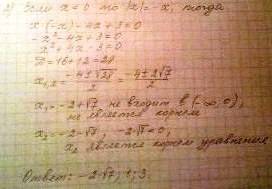 2) Если x < 0 то |x| = -x, тогда
x·(-x) - 4x + 3 = 0
-x² - 4x + 3 = 0
x² + 4x - 3 = 0
D = 16 + 12 = 28
x₁,₂ = (-4 ± √28)/2 = (-4 ± 2√7)/2
x₁ = -2 + √7 не входит в (-∞; 0),
не является корнем
x₂ = -2 - √7, -2 - √7 < 0,
x₂ является корнем уравнения
Ответ: -2 - √7; 1; 3.